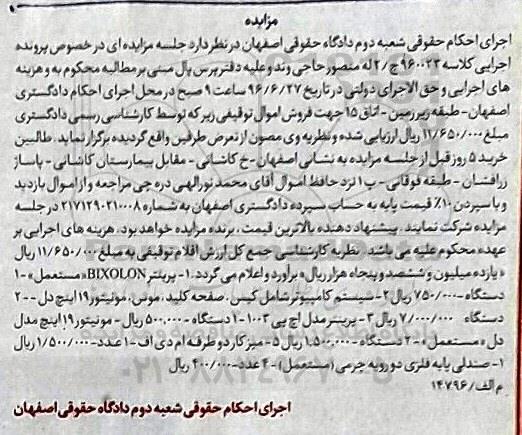 مزایده
اجرای احکام حقوقی شعبه دوم دادگاه حقوقی اصفهان در نظر دارد جلسه مزایده ای در خصوص پرونده
اجرایی کلاسه ۹۶۰۰۲۳ ج/۲ له منصور حاجی وند و علیه دفتر پرس پال مبنی بر مطالبه محکوم به و هزینه
های اجرایی و حق الاجرای دولتی در تاریخ ۹۶/۶/۲۷ ساعت ۹ صبح در محل اجرای احکام دادگستری
اصفهان - طبقه زیرزمین - اتاق ۱۵ جهت فروش اموال توقیفی زیر که توسط کارشناسی رسمی دادگستری
مبلغ ۱۱/۶۵۰/۰۰۰ ریال ارزیابی شده و نظریه وی مصون از تعرض طرفین واقع گردیده برگزار نماید. طالبین
خرید ۵ روز قبل از جلسه مزایده به نشانی اصفهان - خ کاشانی - مقابل بیمارستان کاشانی - پاساژ
زرافشان - طبقه فوقانی - پ ۱ نزد حافظ اموال آقای محمد نورالهی دره چی مراجعه و از اموال بازدید
و با سپردن ۱۰٪ قیمت پایه به حساب سپرده دادگستری اصفهان به شماره ۲۱۷۱۲۹۰۲۱۰۰۸ در جلسه
مزایده شرکت نمایند. پیشنهاد دهنده بالاترین قیمت، برنده مزایده خواهد بود. هزینه های اجرایی بر
عهده محکوم علیه می باشد. نظریه کارشناسی جمع کل ارزش اقلام توقیفی به مبلغ ۱۱/۶۵۰/۰۰۰ ریال
«یازده میلیون و ششصد و پنجاه هزار ریال» برآورد و اعلام می گردد. ۱- پرینتر BIXOLON «مستعمل» - ۱
دستگاه - ۷۵۰/۰۰۰ ریال ۲- سیستم کامپیوتر شامل کیس، صفحه کلید، موس، مونیتور ۱۹ اینچ دل - ۲۰
دستگاه ۷/۰۰۰/۰۰۰ ریال ۳- پرینتر مدل اچ پی ۱۰۰۳-۱ دستگاه - ۵۰۰/۰۰۰ ریال - مونیتور ۱۹ اینچ مدل
دل «مستعمل» - ۲ دستگاه - ۱,۵۰۰,۰۰۰ ریال ۵- میز کار دو طرفه ام دی اف - ۱ عدد - ۱/۵۰۰/۰۰۰ ریال
۶- صندلی پایه فلزی دو رویه چرمی (مستعمل) - ۴ عدد - ۴۰۰/۰۰۰ ریال
م الف/ ۱۴۷۹۶
اجرای احکام حقوقی شعبه دوم دادگاه حقوقی اصفهان